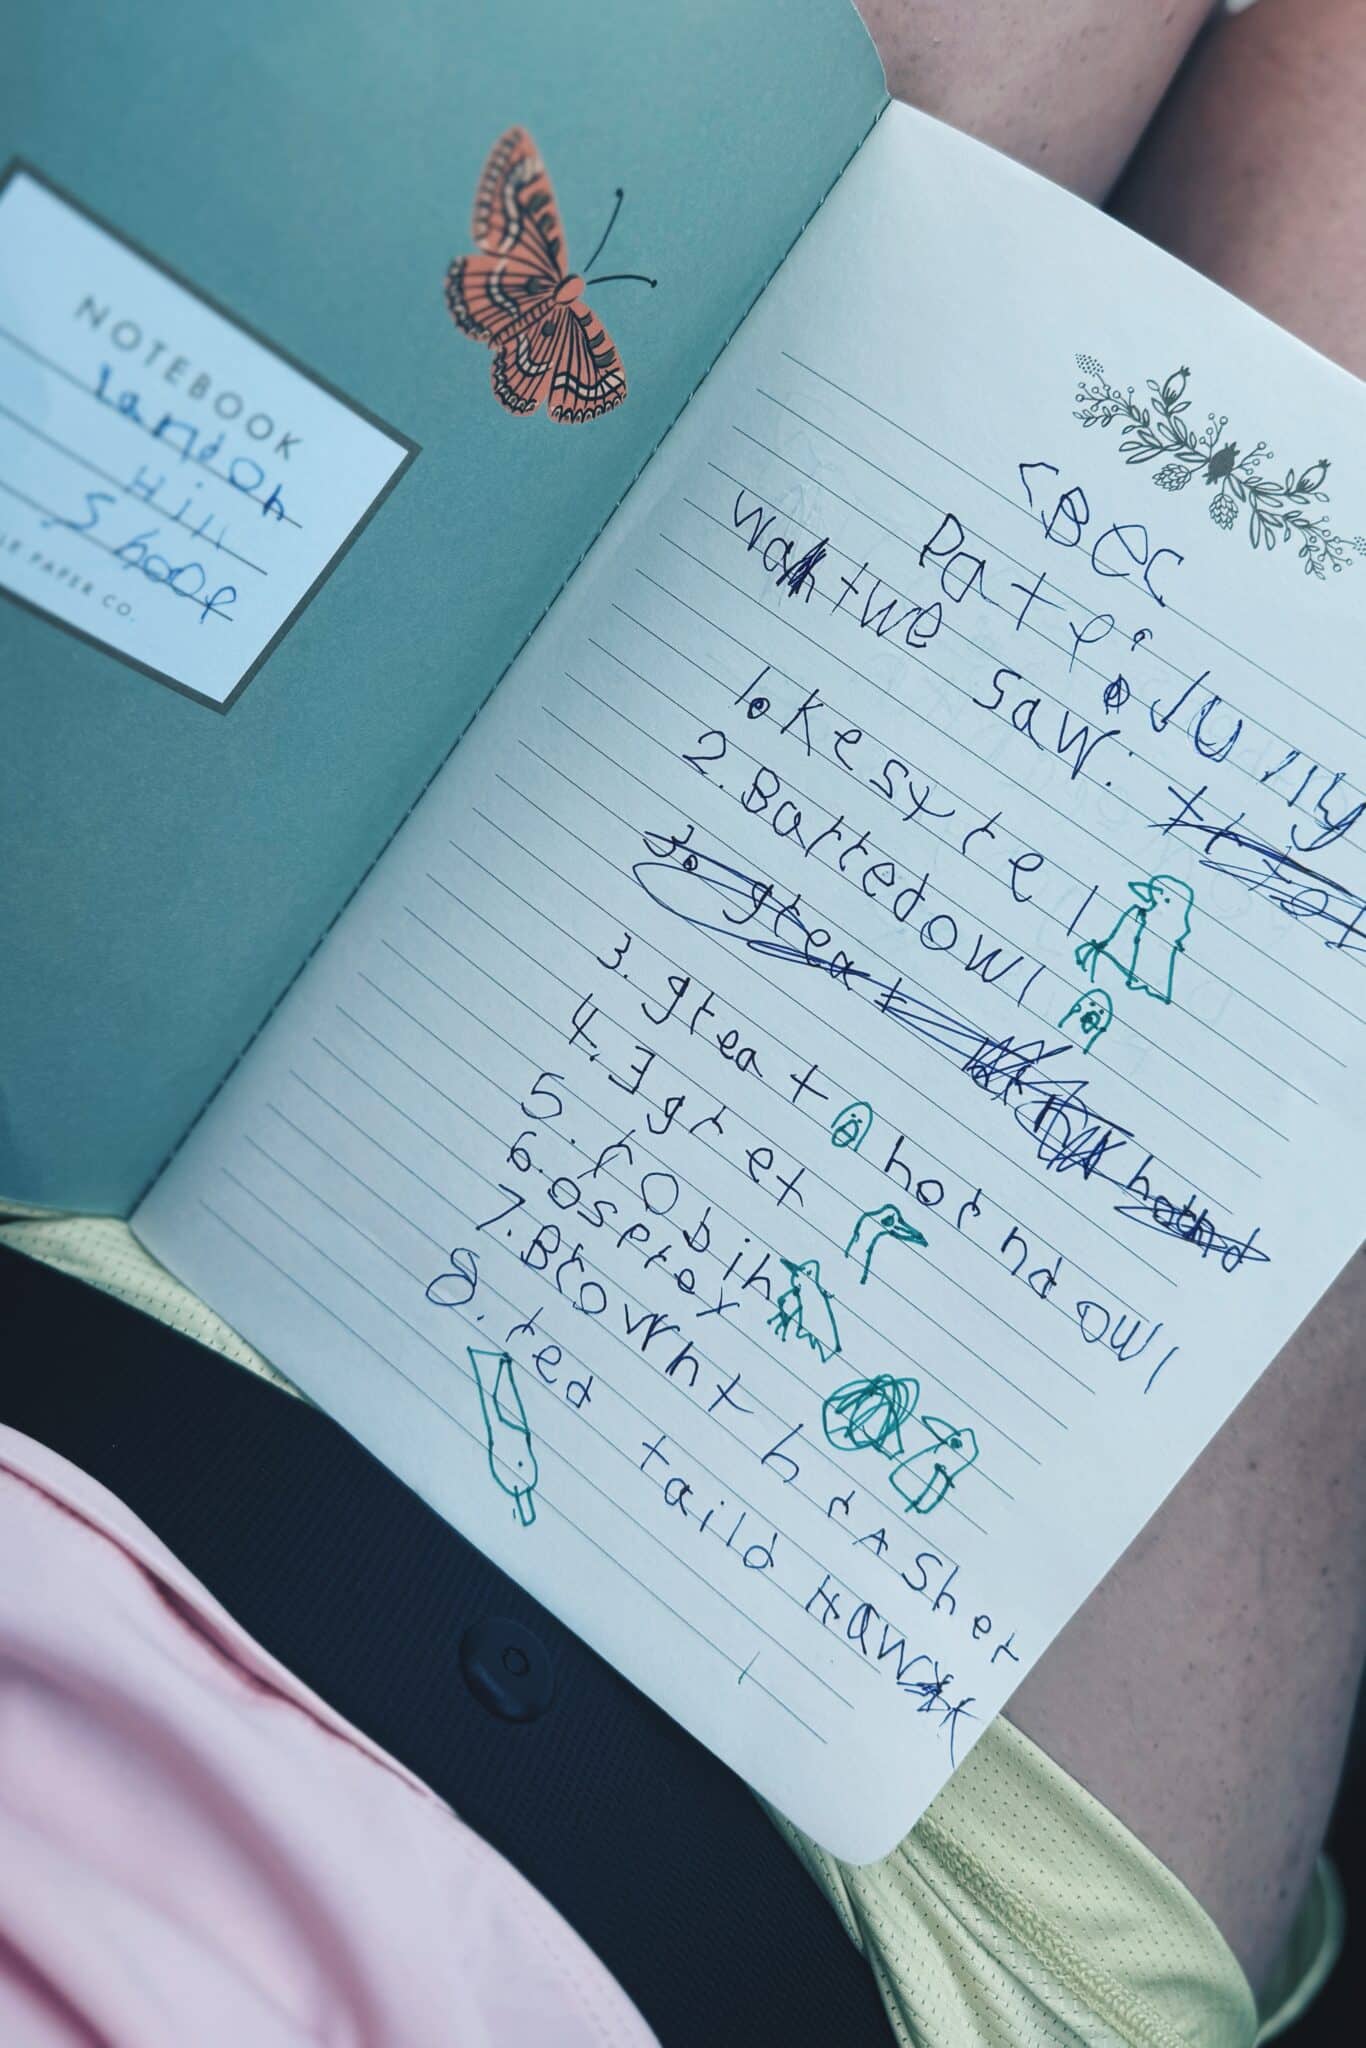 NOTEBOOK
Landon
Hill
Shoop
LE PAPER CO.
CBCC
Date: July
wa twe saw:
1. Kesrtel
2. Barredowl
3. great
3. great hornd owl
4. Egret
5. robin
6. Osprey
7. Brown thrAsher
8. red taild Hawk